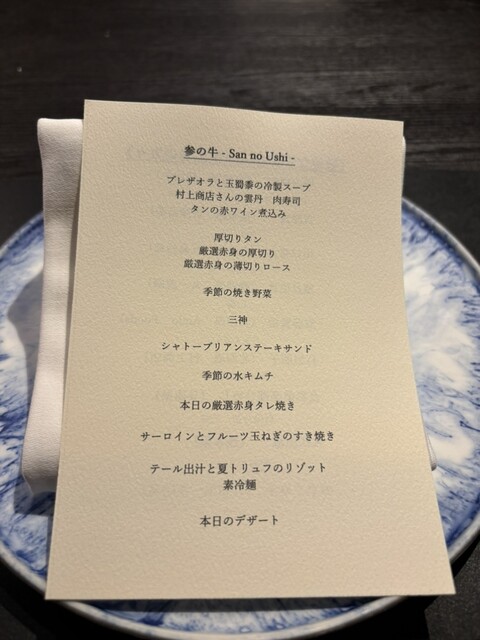 参の牛 - San no Ushi -
ブレザオラと玉蜀黍の冷製スープ
村上商店さんの雲丹　肉寿司
タンの赤ワイン煮込み
厚切りタン
厳選赤身の厚切り
厳選赤身の薄切りロース
季節の焼き野菜
三神
シャトーブリアンステーキサンド
季節の水キムチ
本日の厳選赤身タレ焼き
サーロインとフルーツ玉ねぎのすき焼き
テール出汁と夏トリュフのリゾット
素冷麺
本日のデザート